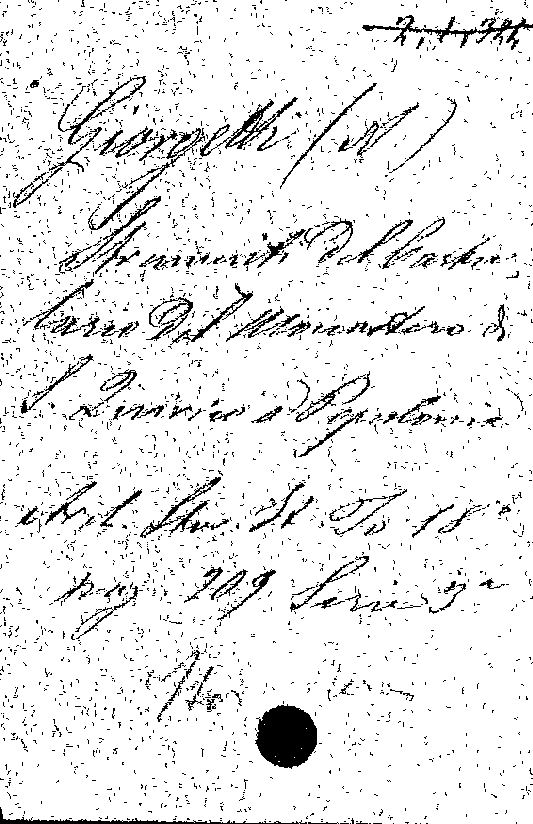 2,1,324
Giorgetti (A)
Strumenti del Cartu-
lario del Monastero di
S. Quirico a Populonia
Arch. Stor. It. To 18°
pag. 209. Serie 3ª